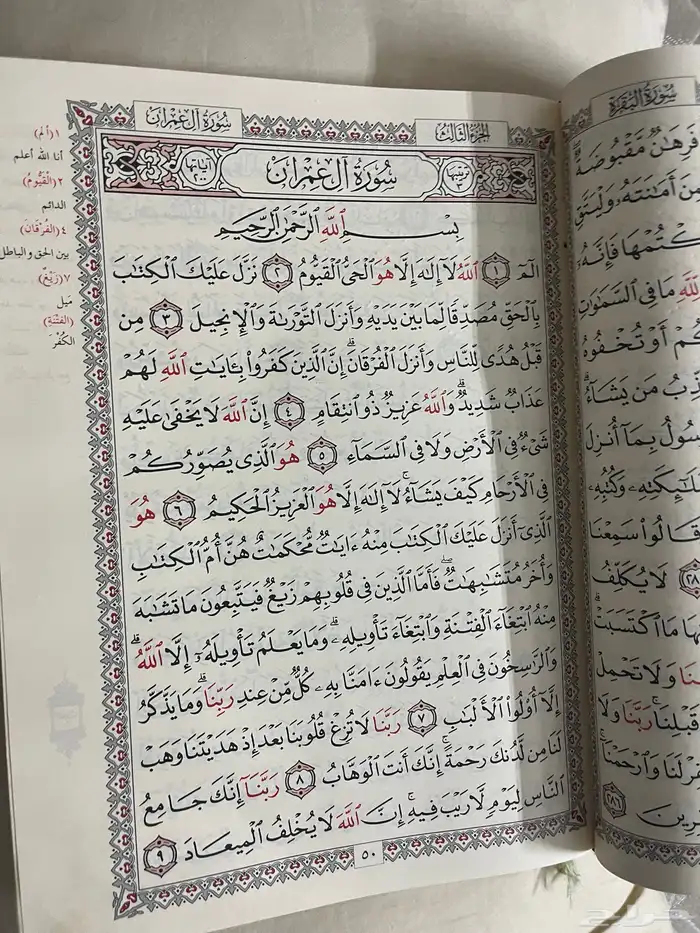 سُورَةُ آلِ عِمْرَان
الجُزْءُ الثَّالِث
ترتيبها ٣
سُورَةُ آلِ عِمْرَانَ
آياتها ٢٠٠
بِسْمِ ٱللَّهِ ٱلرَّحْمَٰنِ ٱلرَّحِيمِ
الٓمٓ ١ ٱللَّهُ لَآ إِلَٰهَ إِلَّا هُوَ ٱلْحَىُّ ٱلْقَيُّومُ ٢ نَزَّلَ عَلَيْكَ ٱلْكِتَٰبَ
بِٱلْحَقِّ مُصَدِّقًا لِّمَا بَيْنَ يَدَيْهِ وَأَنزَلَ ٱلتَّوْرَىٰةَ وَٱلْإِنجِيلَ ٣ مِن
قَبْلُ هُدًى لِّلنَّاسِ وَأَنزَلَ ٱلْفُرْقَانَ ۗ إِنَّ ٱلَّذِينَ كَفَرُوا۟ بِـَٔايَٰتِ ٱللَّهِ لَهُمْ
عَذَابٌ شَدِيدٌ ۗ وَٱللَّهُ عَزِيزٌ ذُو ٱنتِقَامٍ ٤ إِنَّ ٱللَّهَ لَا يَخْفَىٰ عَلَيْهِ
شَىْءٌ فِى ٱلْأَرْضِ وَلَا فِى ٱلسَّمَآءِ ٥ هُوَ ٱلَّذِى يُصَوِّرُكُمْ
فِى ٱلْأَرْحَامِ كَيْفَ يَشَآءُ ۚ لَآ إِلَٰهَ إِلَّا هُوَ ٱلْعَزِيزُ ٱلْحَكِيمُ ٦ هُوَ
ٱلَّذِىٓ أَنزَلَ عَلَيْكَ ٱلْكِتَٰبَ مِنْهُ ءَايَٰتٌ مُّحْكَمَٰتٌ هُنَّ أُمُّ ٱلْكِتَٰبِ
وَأُخَرُ مُتَشَٰبِهَٰتٌ ۖ فَأَمَّا ٱلَّذِينَ فِى قُلُوبِهِمْ زَيْغٌ فَيَتَّبِعُونَ مَا تَشَٰبَهَ
مِنْهُ ٱبْتِغَآءَ ٱلْفِتْنَةِ وَٱبْتِغَآءَ تَأْوِيلِهِۦ ۗ وَمَا يَعْلَمُ تَأْوِيلَهُۥٓ إِلَّا ٱللَّهُ ۗ
وَٱلرَّٰسِخُونَ فِى ٱلْعِلْمِ يَقُولُونَ ءَامَنَّا بِهِۦ كُلٌّ مِّنْ عِندِ رَبِّنَا ۗ وَمَا يَذَّكَّرُ
إِلَّآ أُو۟لُوا۟ ٱلْأَلْبَٰبِ ٧ رَبَّنَا لَا تُزِغْ قُلُوبَنَا بَعْدَ إِذْ هَدَيْتَنَا وَهَبْ
لَنَا مِن لَّدُنكَ رَحْمَةً ۚ إِنَّكَ أَنتَ ٱلْوَهَّابُ ٨ رَبَّنَآ إِنَّكَ جَامِعُ
ٱلنَّاسِ لِيَوْمٍ لَّا رَيْبَ فِيهِ ۚ إِنَّ ٱللَّهَ لَا يُخْلِفُ ٱلْمِيعَادَ ٩
٥٠
١ (الم)
أنا الله أعلم
٢ (القَيُّومُ)
الدائم
٤ (الفُرْقَانَ)
بين الحق والباطل
٧ (زَيْغٌ)
مَيل
(الفِتْنَةِ)
الكُفْر
سُورَةُ البَقَرَة
فَرِهَٰنٌ مَّقْبُوضَةٌ
أَمَٰنَتَهُۥ وَلْيَتَّقِ
فَإِنَّهُۥٓ
مَا فِى ٱلسَّمَٰوَٰتِ
أَوْ تُخْفُوهُ
مَن يَشَآءُ
بِمَآ أُنزِلَ
وَكُتُبِهِۦ
قَالُوا۟ سَمِعْنَا
لَا يُكَلِّفُ
مَا ٱكْتَسَبَتْ
وَلَا تَحْمِلْ
قَبْلِنَا ۚ رَبَّنَا وَلَا
لَنَا وَٱرْحَمْنَآ
٢٨٦
حراج